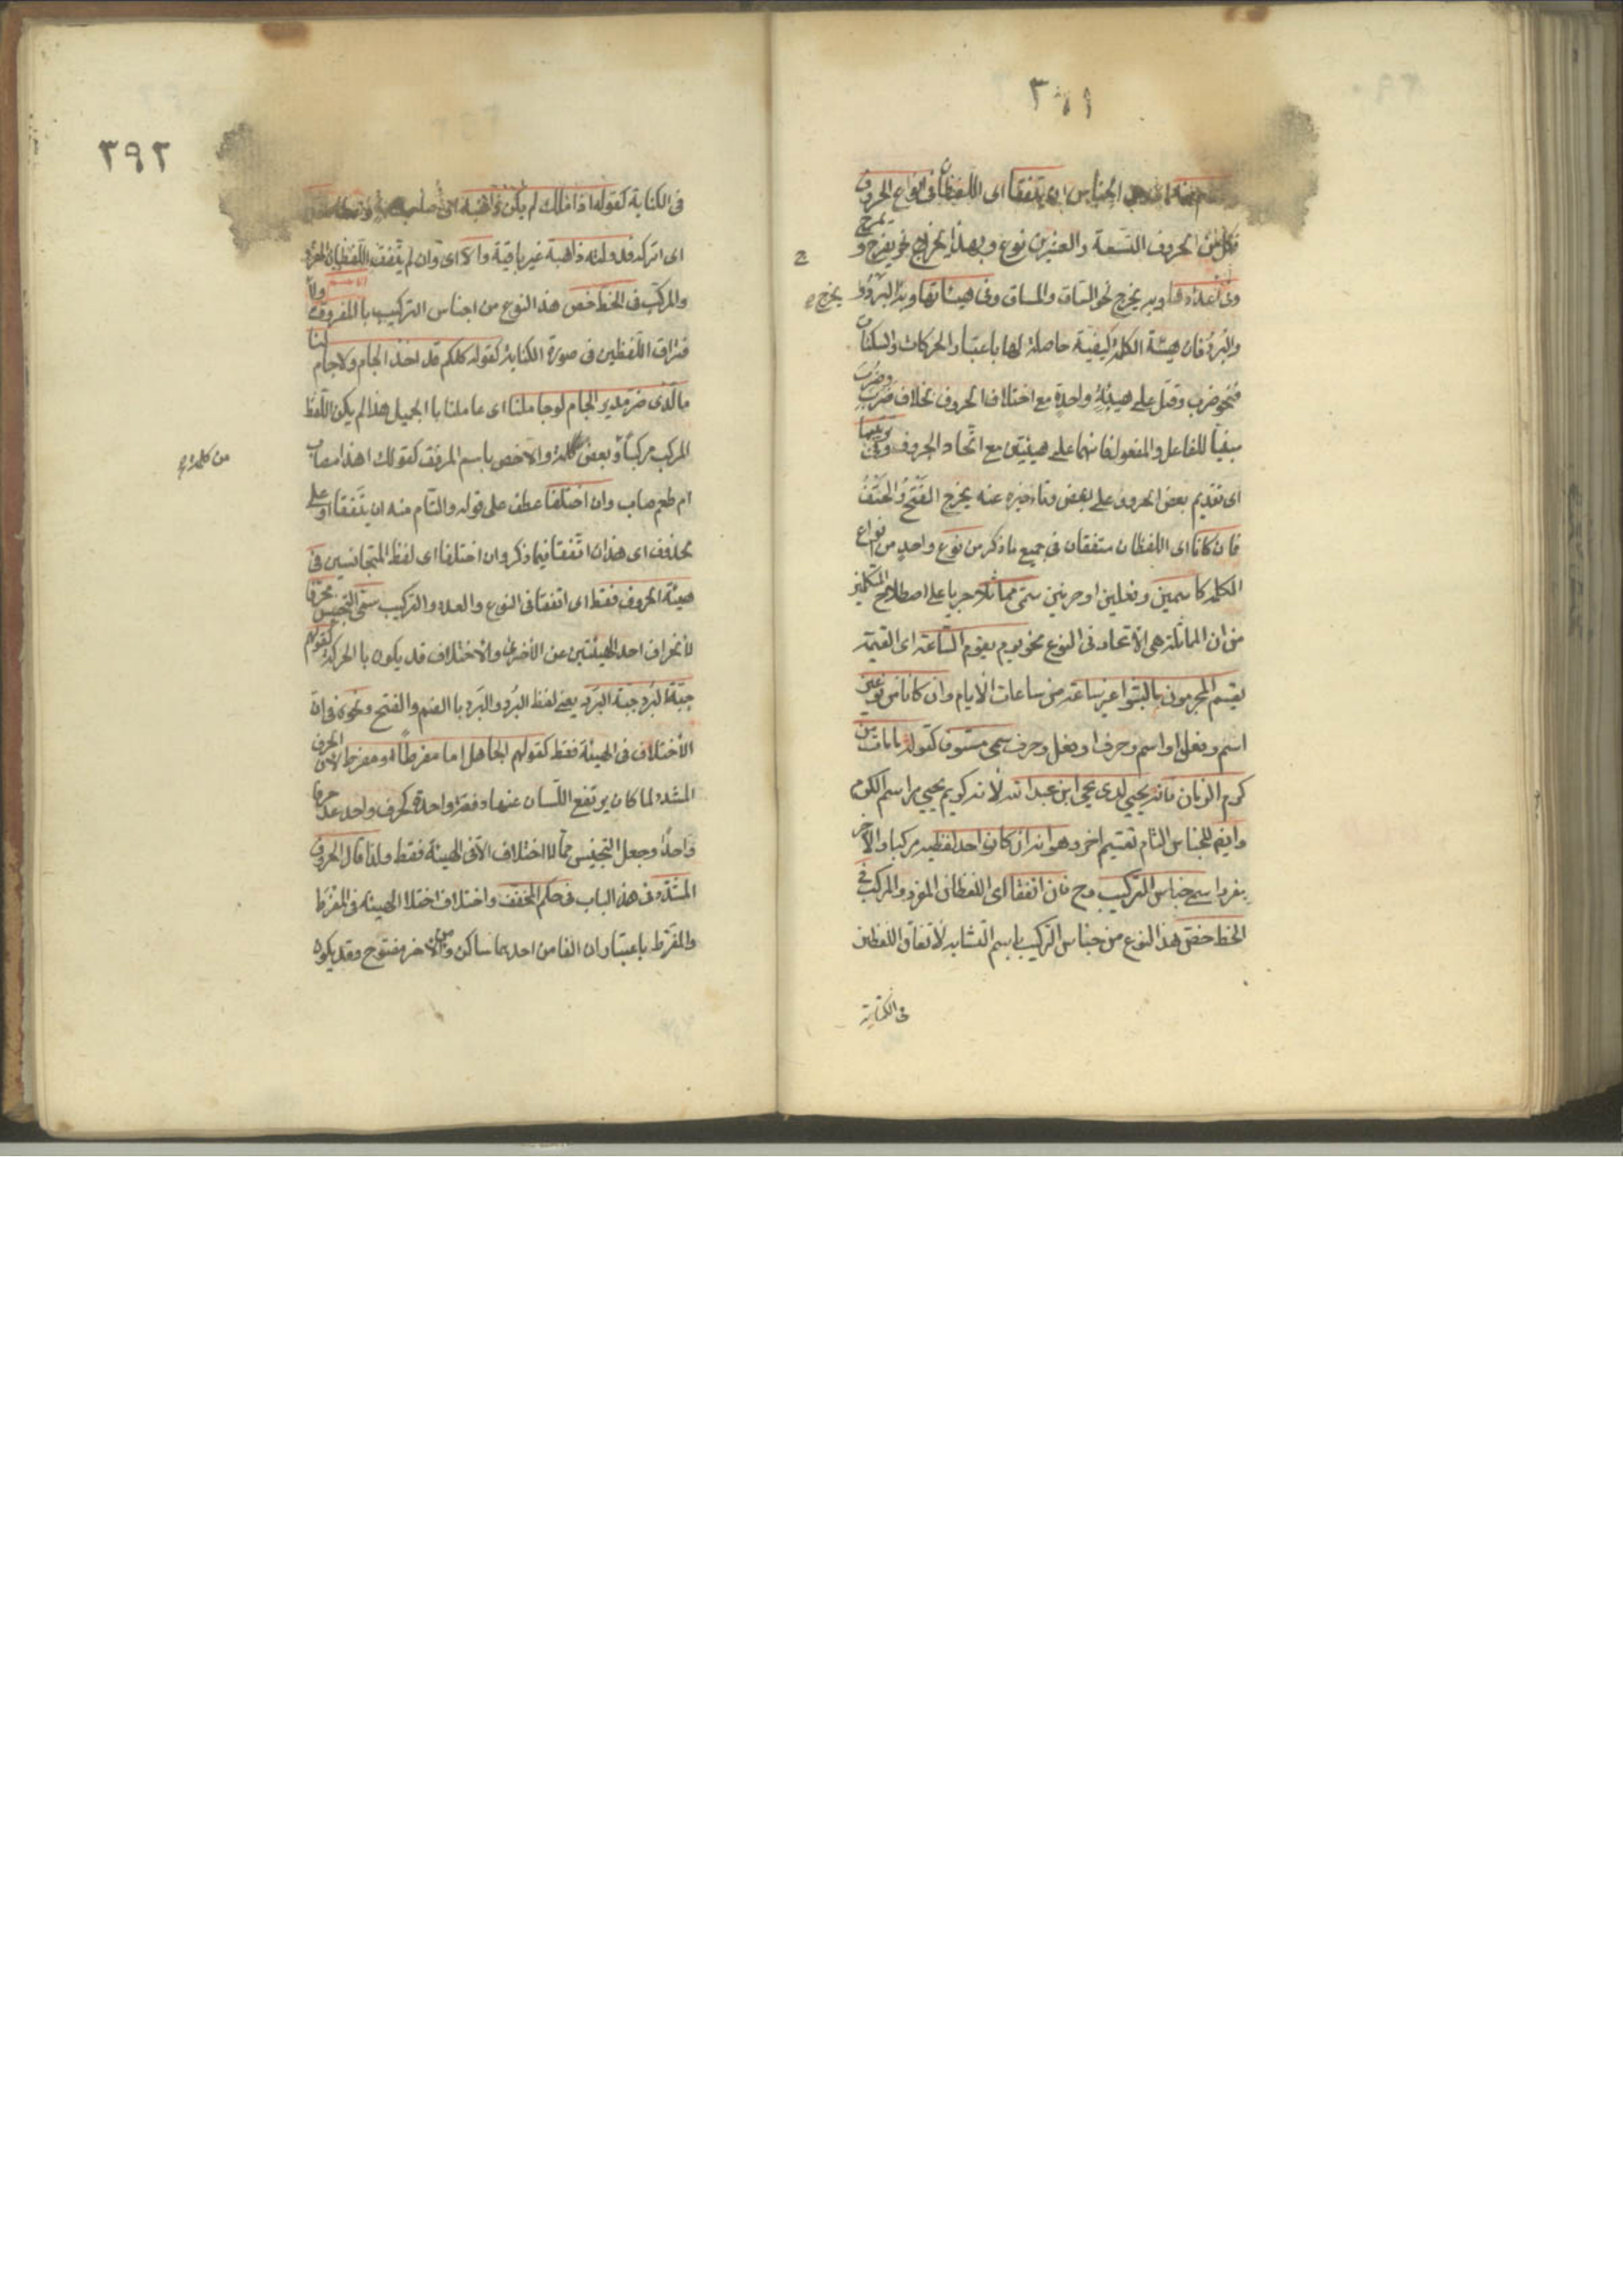 ٣٩١
والتام منه اى من الجناس ان يتفقا اى اللفظان فى انواع الحروف
فكل من الحروف التسعة والعشرين نوع وبهذا يخرج نحو يفرح ويمرح
وفى اعدادها وبه يخرج نحو الساق والمساق وفى هيئاتها وبه يخرج البرد
والبرد فان هيئة الكلمة كيفية حاصلة لها باعتبار الحركات والسكنات
فنحو ضرب وقتل على هيئة واحدة مع اختلاف الحروف بخلاف ضرب وضرب
مبنيا للفاعل والمفعول فانهما على هيئتين مع اتحاد الحروف وفى ترتيبها
اى تقديم بعض الحروف على بعض وتاءخيره عنه يخرج الفتح والحتف
فان كانا اى اللفظان متفقان فى جميع ما ذكر من نوع واحد من انواع
الكلمة كاسمين وفعلين او حرفين سمى مماثلا جريا على اصطلاح المتكلمين
من ان المماثلة هى الاتحاد فى النوع نحو يوم يقوم الساعة اى القيمة
يقسم المجرمون مالبثوا غير ساعة من ساعات الايام وان كانا من نوعين
اسم وفعل او اسم وحرف او فعل وحرف سمى مستوفى كقوله ما مات من
كرم الزمان فانه يحيى لدى يحيى ابن عبد الله لانه كريم يحيى مراسم الكرم
وايضا للجناس التام تقسيم اخر وهو انه ان كان احد لفظيه مركبا والآخر
مفردا سمى جناس التركيب وح فان اتفقا اى اللفظان المفرد والمركب فى
الخط خص هذا النوع من جناس التركيب باسم المتشابه لاتفاق اللفظين
فى الكتابة
٣٩٢
فى الكتابة كقوله اذا ملك لم يكن ذاهبة
اى اتركه فدولته ذاهبة غير باقية والا اى وان لم يتفق اللفظان المفرد
والمركب فى الخط خص هذا النوع من اجناس التركيب بالمفروق
فتراق اللفظين فى صورة الكتابة كقوله كلكم قد اخذ الجام ولا جام لنا
ما الذى ضر مدير الجام لو جاملنا اى عاملنا با الجميل هذا لم يكن اللفظ
المركب مركبا وبعض كلمة والا خص باسم المرفق كقولك اهذا مصاب
من كلمة
ام طعم صاب وان اختلفا عطف على قوله والتام منه ان يتفقا او على
محذوف اى هذا ان اتفقا فيما ذكر وان اختلفا اى لفظ المتجانسين فى
هيئة الحروف فقط اى اتفقا فى النوع والعدد والتركيب سمى التجنيس محرفا
لانحراف احد الهيئتين عن الأخرى والأختلاف قد يكون با الحركة كقولهم
جبة البرد جنة البرد يعنى لفظ البرد والبرد با الضم والفتح ونحوه فى ان
الأختلاف فى الهيئة فقط كقولهم الجاهل اما مفرط او مفرط لان الحرف
المشدد لما كان يرتفع اللسان عنهما دفعة واحدة كحرف واحد عد حرفا
واحدا وجعل التجنيس مما لا اختلاف الا فى الهيئة فقط ولذا قال الحروف
المشدد فى هذا الباب فى حكم المخفف واختلاف اختلا الهيئة فى المفرط
والمفرط باعتبار ان الفا من احدهما ساكن ومن الآخر مفتوح وقد يكون